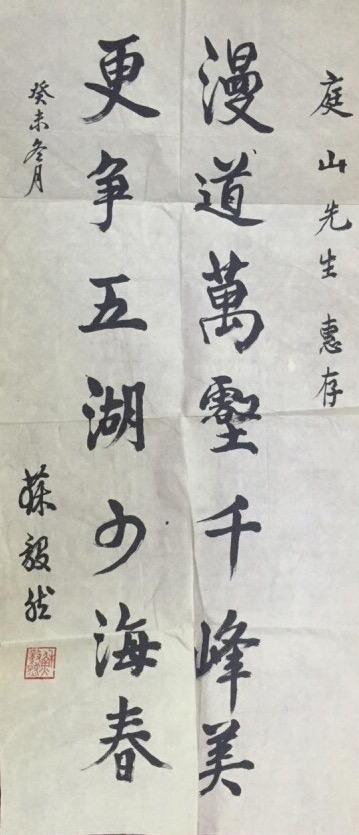 庭山先生惠存
漫道萬壑千峰美
更争五湖四海春
癸未冬月
蘇毅然